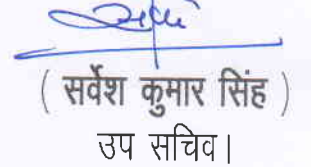 ( सर्वेश कुमार सिंह )
उप सचिव।